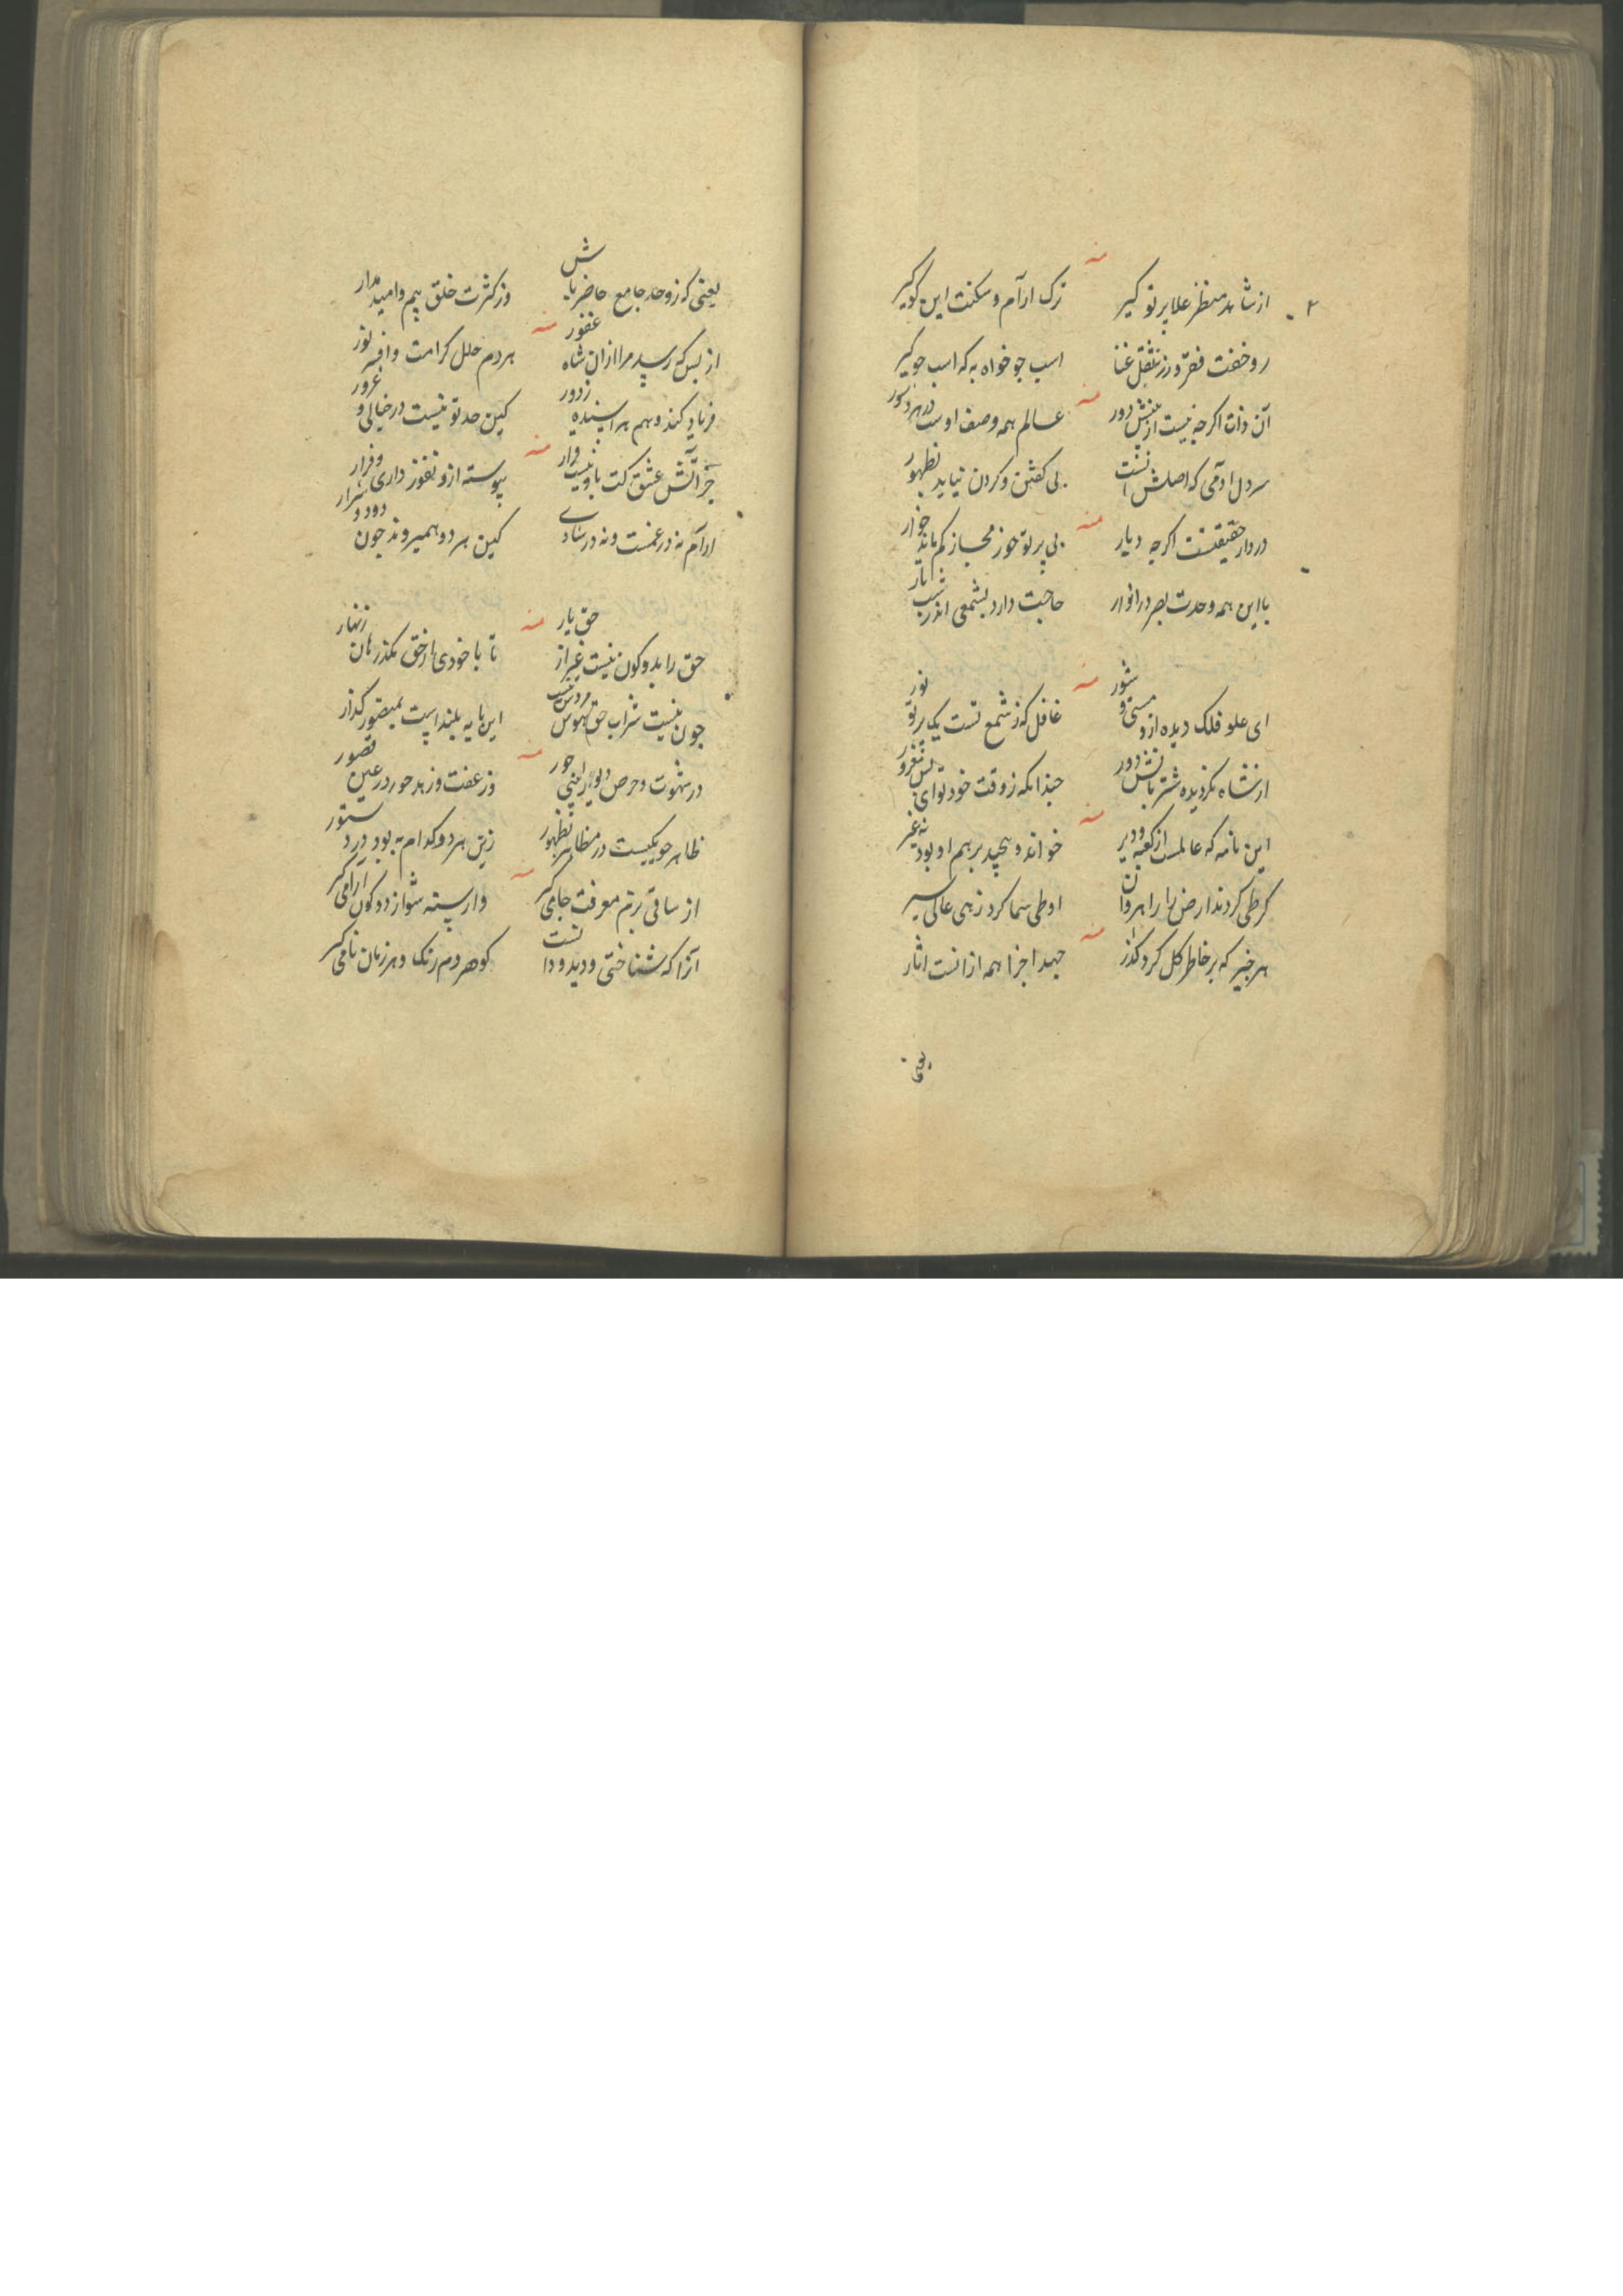 از شاهد منظر علا پرتو گیر
ترک ارام و سکنت این کو گیر
رو خفت فقر و رز ثقل غنا
اسب جو خواه به که اسب جو گیر
آن ذات اگرچه نیست از بینش دور
عالم همه وصف اوست در هر دستور
سر دل ادمی که اصلش انست
بی کفتن و کردن نیاید بظهور
در دار حقیقتست اگرچه دیار
بی پرتو حوز مجاز کم ماند خوار
با این همه وحدت بصر در انوار
حاجت دارد بشمعی اندر شب تار
ای علو فلک دیده ازو مستی و شور
غافل که ز شمع تست یک پرتو نور
از نشاه نکردیده سرت بانش دور
چندانکه ز وقت خود توای مغرور
این نامه که عالمست از کعبه و دیر
خواند و بپیچد بر هم او بود نه غیر
کر طی کردند ارض را راهروان
او طی سما کرد زهی عالی سیر
هر چیز که بر خاطر کل کرد گذر
جهد اجزا همه از انست اثار
یعنی
یعنی که ز وحد جامع حاضر باش
وز کثرت خلق بیم و امید مدار
از بس که رسید مرا ازان شاه غفور
هر دم حلل کرامت و افسر نور
فریاد کند وهم هر اینده ز دور
کین حد تو نیست در خیالی و غرور
جز آتش عشق کت باو نیست قرار
پیوسته ازو نفوز داری و فرار
ارام نه در غمست و نه در شادی
کین هر دو همیروند چون دود و شرار
حق را بدو کون نیست غیر از حق یار
تا با خودی از حق مگذر هان زنهار
چون نیست شراب حق بهوس مردمی نیست
این پایه بلند است بمیقصور گذار
در شهوت و حرص دیو را بینی حور
وز عفت و زهد حور در عین قصور
ظاهر چو یکیست در مظاهر بظهور
زین هر دو کدام به بود در دستور
از ساقی بزم معرفت جامی گیر
وارسته شو از دو کون ارامی گیر
آنرا که شناختی و دیدی و دانست
کو هر دم رنگ و هر زمان نامی گیر